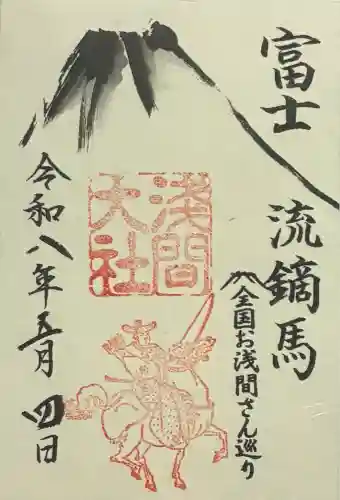 富士
流鏑馬
全国お浅間さん巡り
浅間
大社
令和八年五月四日